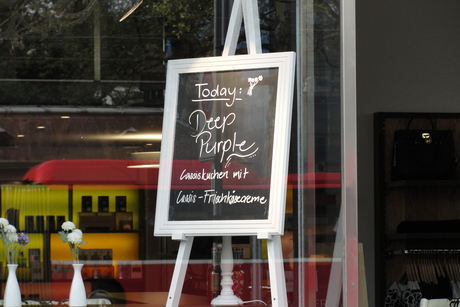 Today:
Deep
Purple
Cassiskuchen mit
Cassis-Frischkäsecreme